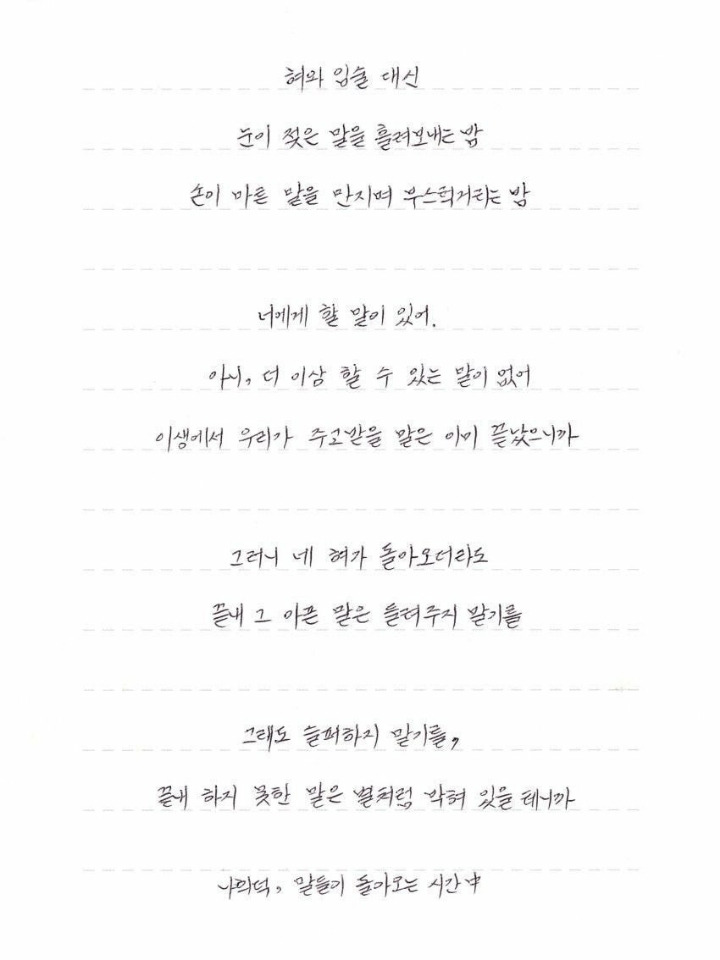 혀와 입술 대신
눈이 젖은 말을 흘려보내는 밤
손이 마른 말을 만지며 부스럭거리는 밤
너에게 할 말이 있어.
아니, 더 이상 할 수 있는 말이 없어
이생에서 우리가 주고받을 말은 이미 끝났으니까
그러니 네 혀가 돌아오더라도
끝내 그 아픈 말은 들려주지 말기를
그래도 슬퍼하지 말기를,
끝내 하지 못한 말은 별처럼 박혀 있을 테니까
나희덕, 말들이 돌아오는 시간 中